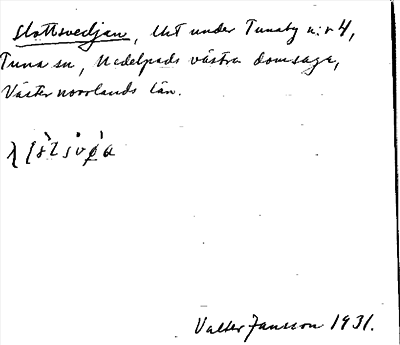 Slottsvedjan, Uet under Tunaby n:r 4,
Tuna sn, Medelpads västra domsaga,
Västernorrlands län.
Valter Jansson 1931.